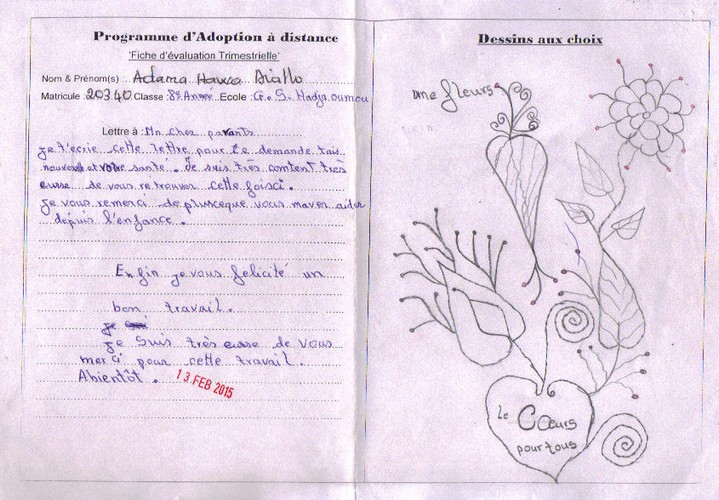 Programme d'Adoption à distance
'Fiche d'évaluation Trimestrielle'
Nom & Prénom(s) : Adama Hawa Diallo
Matricule : 20340 Classe : 8è Année Ecole : G. S. Hadja oumou
Lettre à : Mn cher parants
je t'ecrie cette lettre pour te demande tais
nouvelle et votre santé. Je suis très contenT très
eurse de vous retrouver cette foisci.
je vous remerci de pluseque vous mavez aider
depuis l'enfance.
Enfin je vous felicité un
bon travail.
je
je suis très eurse de vous
merci pour cette travail.
Abientôt.
13 FEB 2015
Dessins aux choix
une fleurs
le Cœurs
pour tous